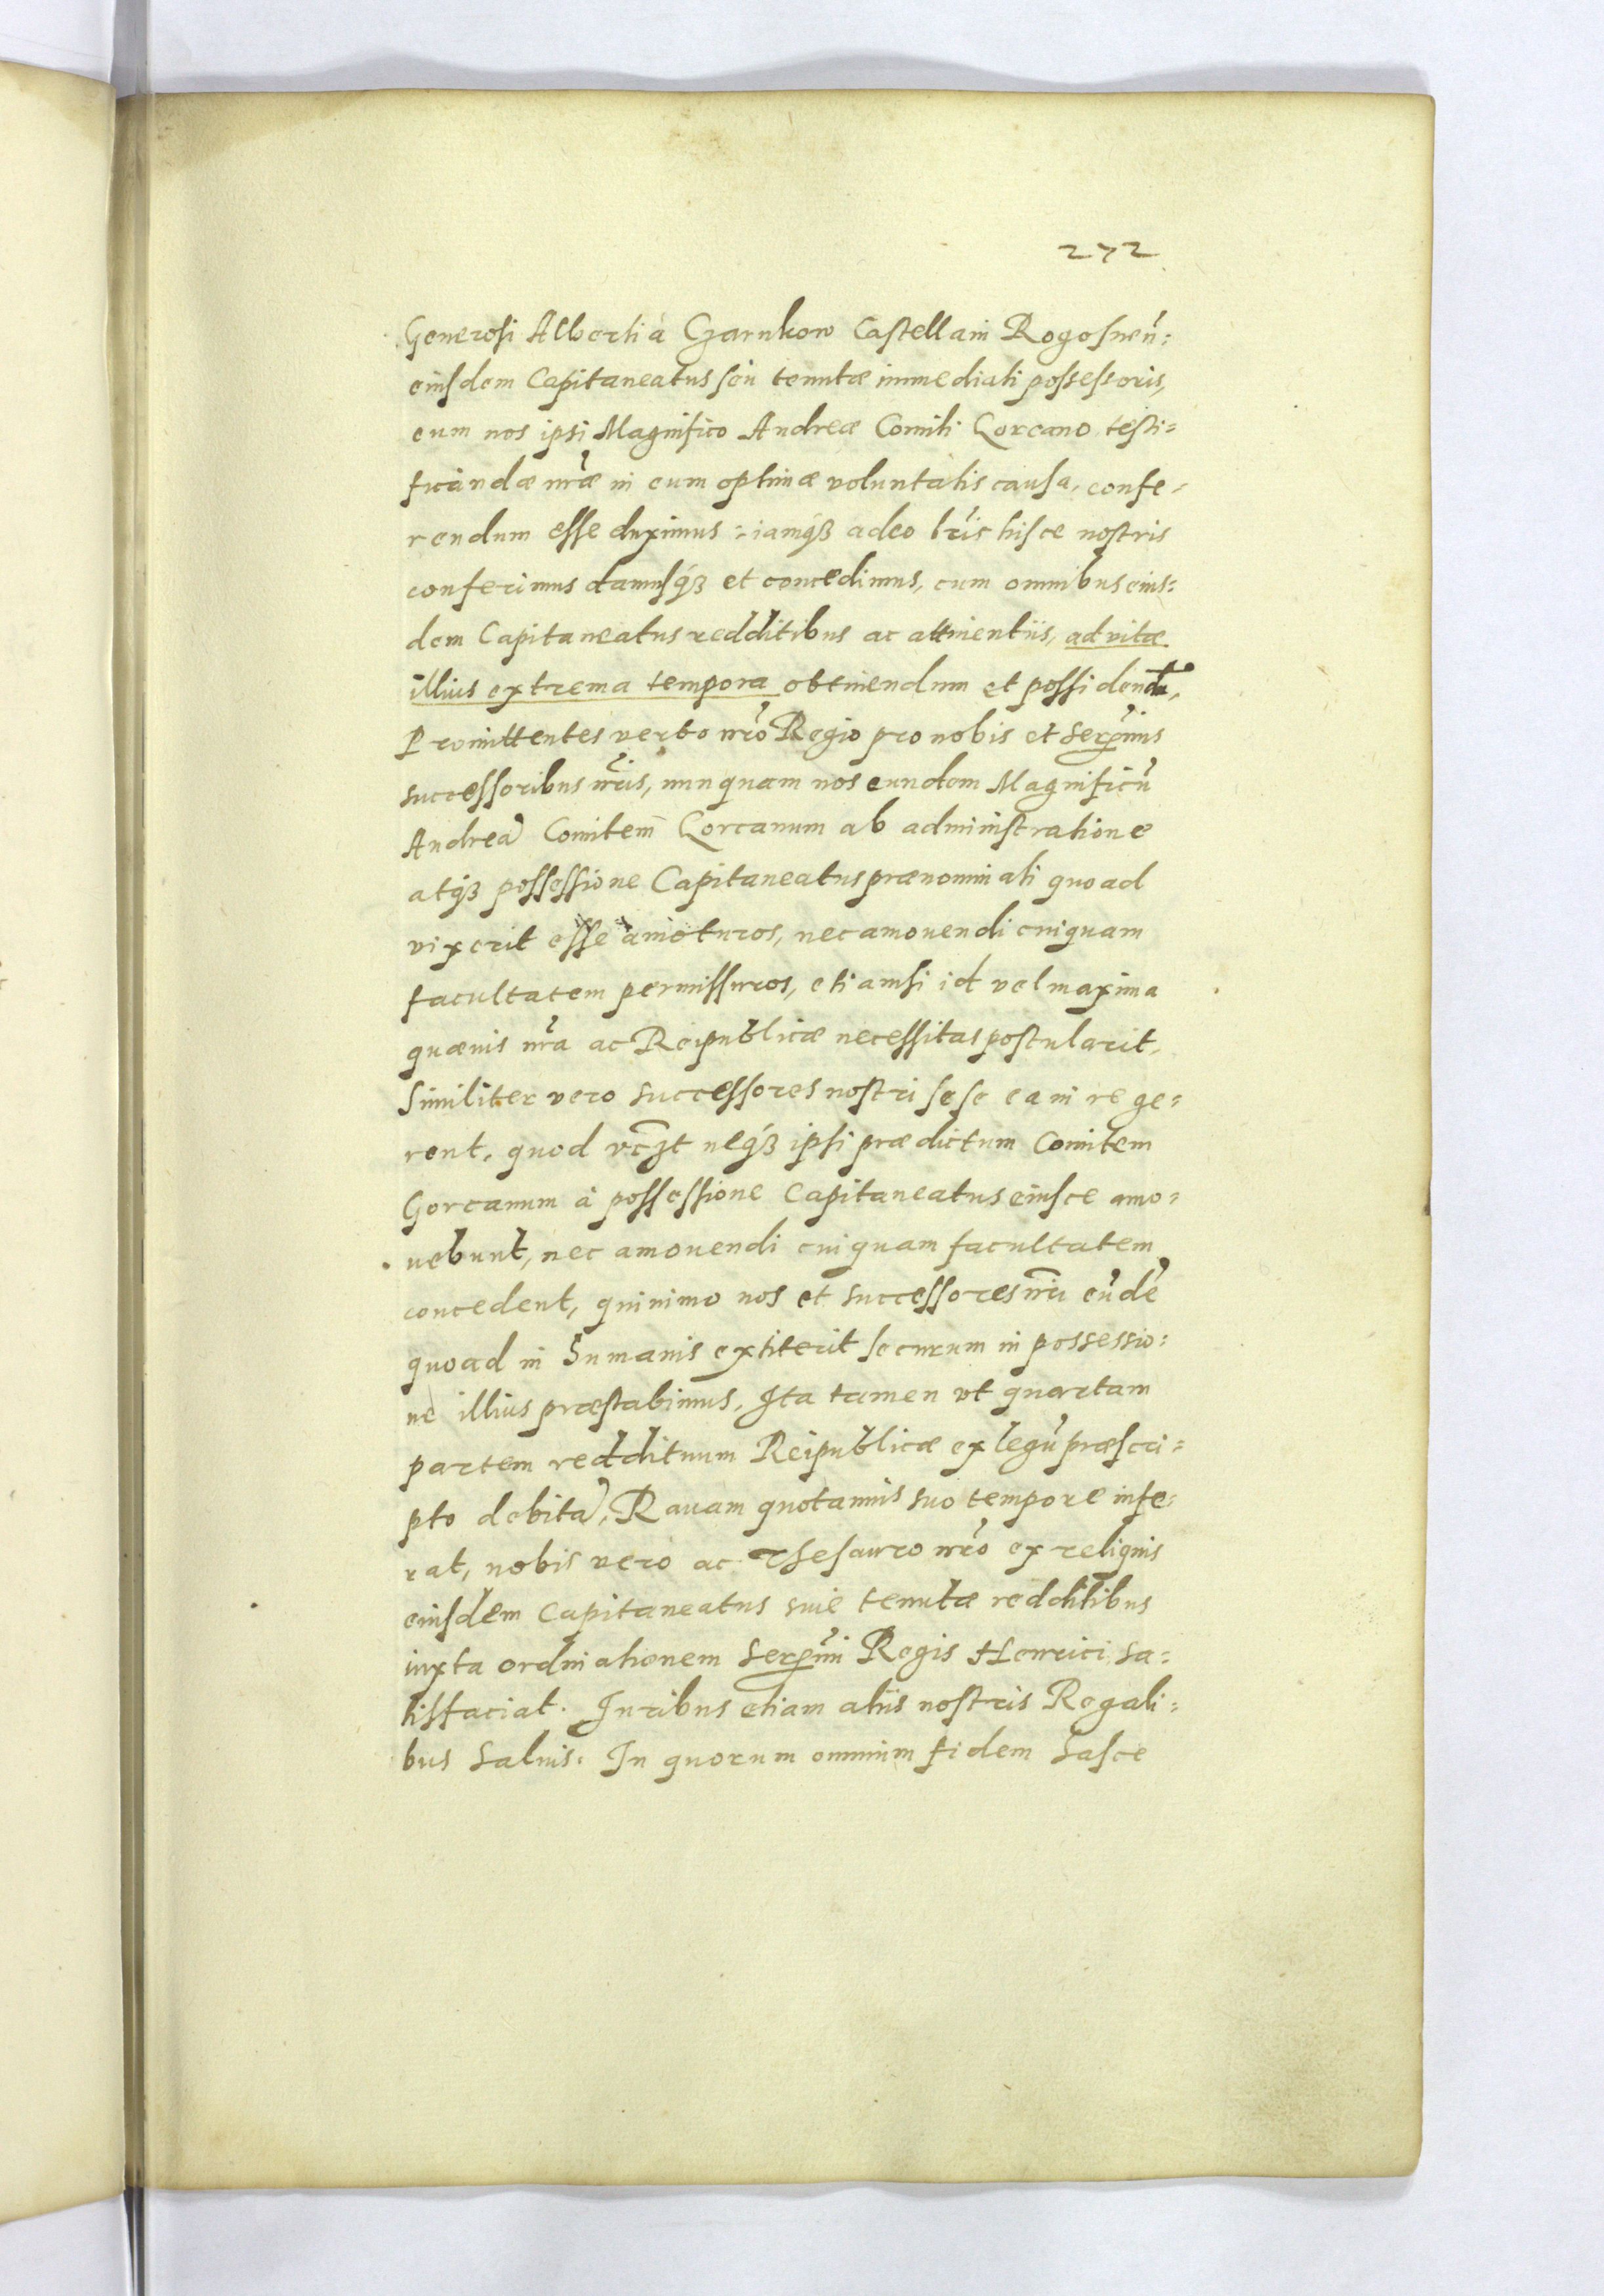 272
Generosi Alberti à Czarnkow Castellani Rogosneñ:
eiusdem Capitaneatus seu tenutæ immediati possessoris,
eum nos ipsi Magnifico Andreæ Comiti Gorcano, testi=
ficandæ nr̃æ in eum optimæ voluntatis causa, confe=
rendum esse duximus: iamqꝫ adeo lr̃is hisce nostris
conferimus damusqꝫ et concedimus, cum omnibus eius=
dem Capitaneatus redditibus ac attinentiis, ad vitæ
illius extrema tempora obtinendum et possidendū,
Promittentes verbo nr̃o Regio pro nobis et Serẽmis
successoribus nr̃is, nunquam nos eundem Magnificũ
Andreã Comitem Gorcanum ab administratione
atqꝫ possessione Capitaneatus prænominati quoad
vixerit esse amoturos, nec amouendi cuiquam
facultatem permissuros, etiamsi id vel maxima
quæuis nr̃a ac Reipublicæ necessitas postularit,
Similiter vero successores nostri sese ea in re ge=
rent, quod vcꝫt neqꝫ ipsi prædictum Comitem
Gorcanum à possessione Capitaneatus eiusce amo=
uebunt, nec amouendi cuiquam facultatem
concedent, quinimo nos et successores nr̃i eũdẽ
quoad in humanis extiterit securum in possessio=
ne illius præstabimus, Ita tamen vt quartam
partem reddituum Reipublicæ ex legũ præscri=
pto debitã, Rauam quotannis suo tempore infe=
rat, nobis vero ac Thesauro nr̃o ex reliquis
eiusdem Capitaneatus siue tenutæ redditibus
iuxta ordinationem Serẽmi Regis Henrici sa=
tisfaciat. Iuribus etiam aliis nostris Regali=
bus saluis. In quorum omnium fidem hasce